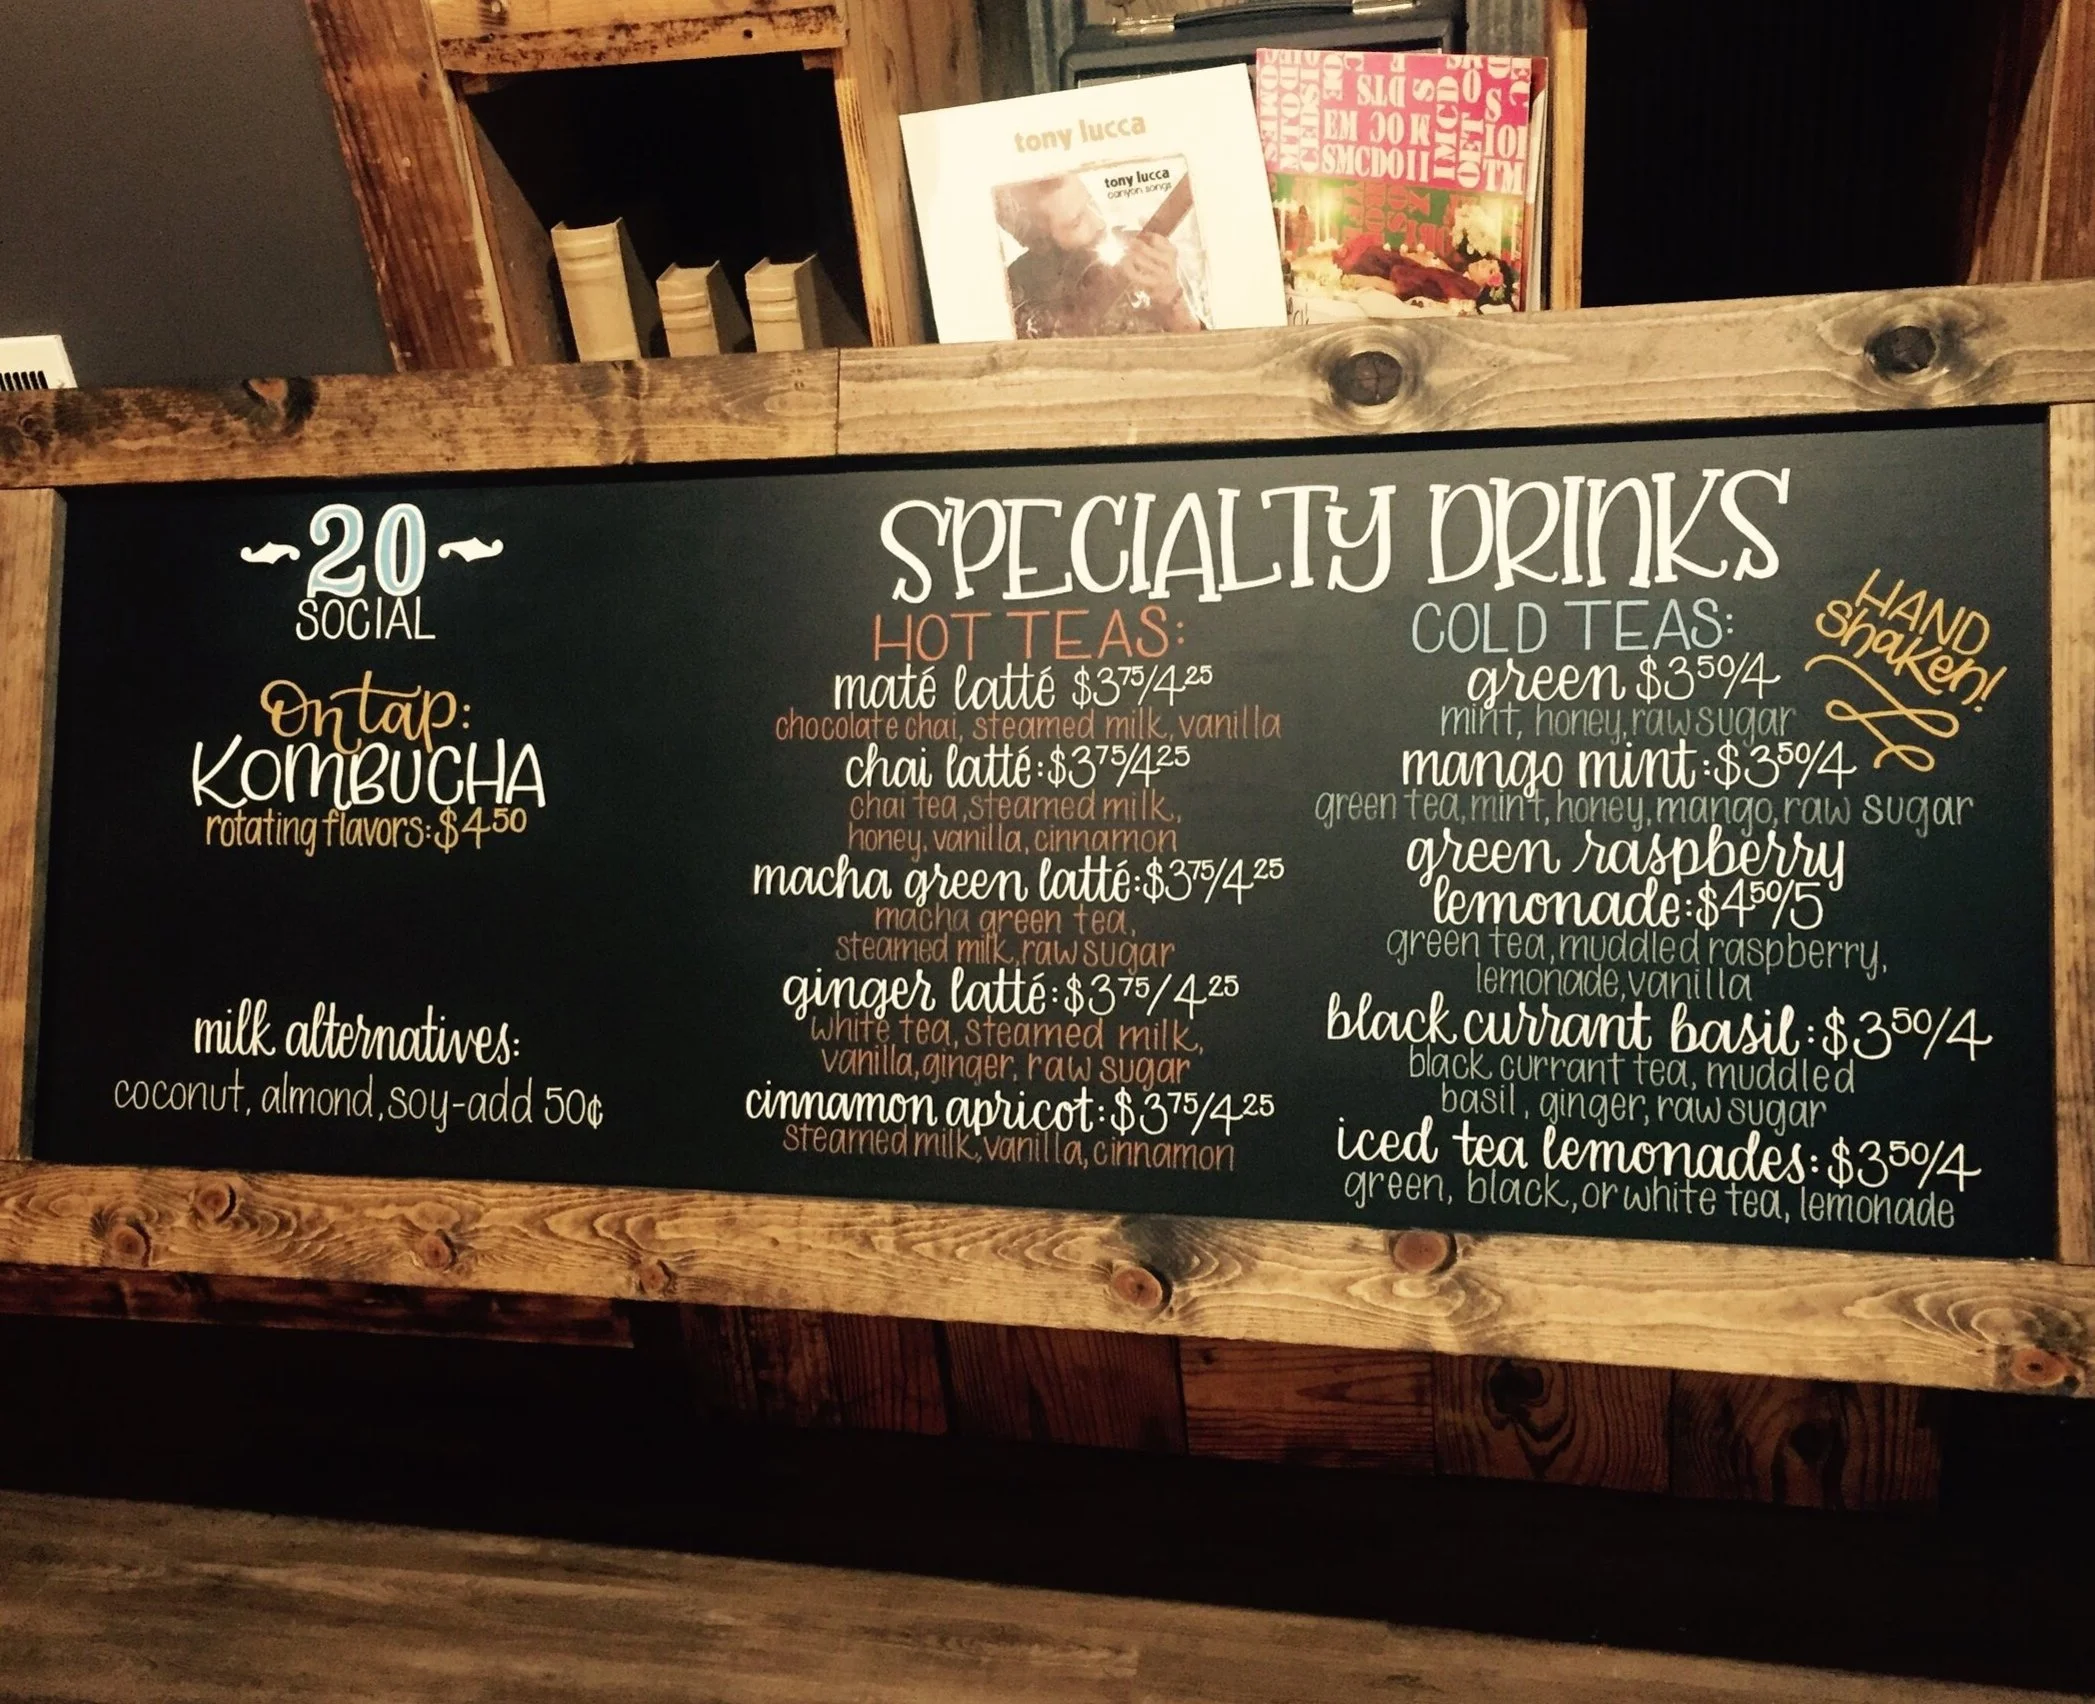 tony lucca
tony lucca
canyon songs
20
SOCIAL
On tap:
KOMBUCHA
rotating flavors: $4.50
milk alternatives:
coconut, almond, soy-add 50¢
SPECIALTY DRINKS
HOT TEAS:
maté latté $3.75/4.25
chocolate chai, steamed milk, vanilla
chai latté: $3.75/4.25
chai tea, steamed milk,
honey, vanilla, cinnamon
macha green latté: $3.75/4.25
macha green tea,
steamed milk, raw sugar
ginger latté: $3.75/4.25
white tea, steamed milk,
vanilla, ginger, raw sugar
cinnamon apricot: $3.75/4.25
steamed milk, vanilla, cinnamon
COLD TEAS:
HAND
shaken!
green $3.50/4
mint, honey, raw sugar
mango mint: $3.50/4
green tea, mint, honey, mango, raw sugar
green raspberry
lemonade: $4.50/5
green tea, muddled raspberry,
lemonade, vanilla
black currant basil: $3.50/4
black currant tea, muddled
basil, ginger, raw sugar
iced tea lemonades: $3.50/4
green, black, or white tea, lemonade